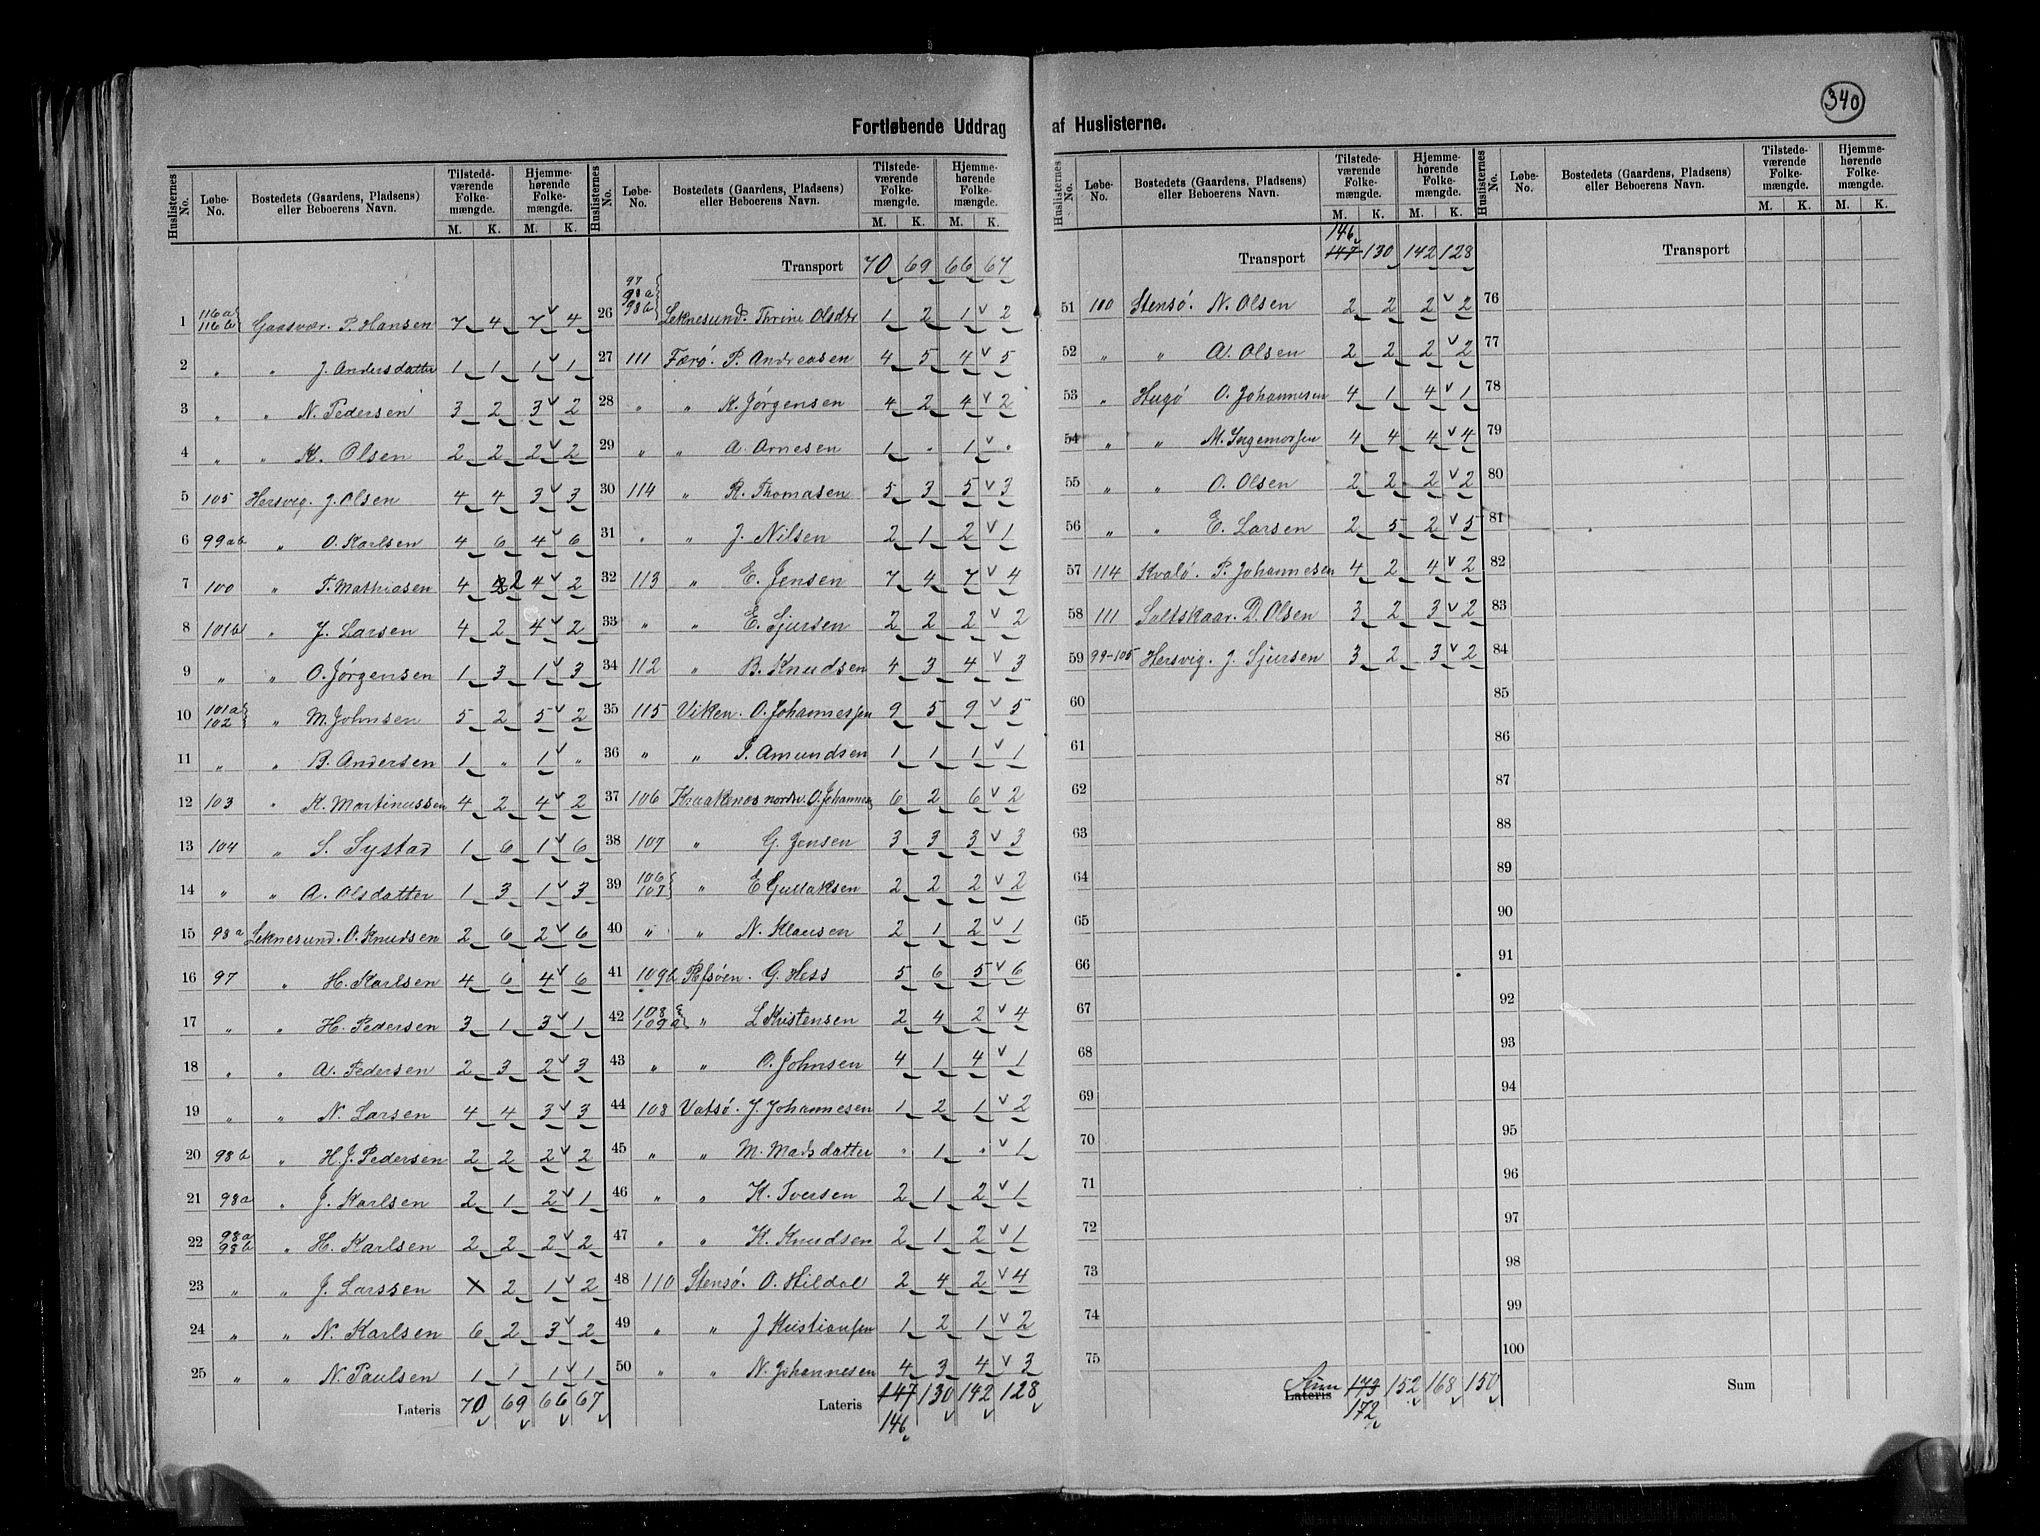 340
Fortløbende Uddrag af Huslisterne.
Huslisternes No. Løbe-No. Bostedets (Gaardens, Pladsens) eller Beboerens Navn. Tilstedeværende Folkemængde. M. K. Hjemmehørende Folkemængde. M. K.
1 116a 116b Gaasvær. P. Hansen 7 4 7 4
2 „ „ J. Andersdatter 1 1 1 1
3 „ „ N. Pedersen 3 2 3 2
4 „ „ K. Olsen 2 2 2 2
5 105 Hersvig. J. Olsen 4 4 3 3
6 99ab „ O. Karlsen 4 6 4 6
7 100 „ T. Mathiasen 4 2 4 2
8 101b „ J. Larsen 4 2 4 2
9 „ „ O. Jørgensen 1 3 1 3
10 101a 102 „ M. Johnsen 5 2 5 2
11 „ „ B. Andersen 1 „ 1 „
12 103 „ K. Martinussen 4 2 4 2
13 104 „ S. Systad 1 6 1 6
14 „ „ A. Olsdatter 1 3 1 3
15 98a Leknesund. O. Knudsen 2 6 2 6
16 97 „ H. Karlsen 4 6 4 6
17 „ „ H. Pedersen 3 1 3 1
18 „ „ A. Pedersen 2 3 2 3
19 „ „ N. Larsen 4 4 3 3
20 98b „ H. J. Pedersen 2 2 2 2
21 98a „ J. Karlsen 2 1 2 1
22 98a 98b „ H. Karlsen 2 2 2 2
23 „ „ J. Larssen 2 1 2
24 „ „ N. Karlsen 6 2 3 2
25 „ „ N. Paulsen 1 1 1 1
Lateris 70 69 66 67
Huslisternes No. Løbe-No. Bostedets (Gaardens, Pladsens) eller Beboerens Navn. Tilstedeværende Folkemængde. M. K. Hjemmehørende Folkemængde. M. K.
Transport 70 69 66 67
26 97 98a 98b Leknesund. Thrine Olsdtr 1 2 1 2
27 111 Færø. P. Andreasen 4 5 4 5
28 „ „ K. Jørgensen 4 2 4 2
29 „ „ A. Arnesen 1 „ 1 „
30 114 „ R. Thomasen 5 3 5 3
31 „ „ J. Nilsen 2 1 2 1
32 113 „ E. Jensen 7 4 7 4
33 „ „ E. Sjursen 2 2 2 2
34 112 „ B. Knudsen 4 3 4 3
35 115 Viken. O. Johannessen 9 5 9 5
36 „ „ S. Amundsen 1 1 1 1
37 106 Kraakenos nordre. O. Johannes 6 2 6 2
38 107 „ G. Jensen 3 3 3 3
39 106 107 „ E Gullaksen 2 2 2 2
40 „ „ N. Klausen 2 1 2 1
41 109b Refsøen. G. Hess 5 6 5 6
42 108 109a „ L Kristensen 2 4 2 4
43 „ „ O. Johnsen 4 1 4 1
44 108 Vatsø. J. Johannesen 1 2 1 2
45 „ „ M. Madsdatter „ 1 „ 1
46 „ „ K. Iversen 2 1 2 1
47 „ „ K. Knudsen 2 1 2 1
48 110 Stensø. O. Hildal 2 4 2 4
49 „ „ J Kristiansen 1 2 1 2
50 „ „ N. Johannesen 4 3 4 3
Lateris 147 130 142 128
146
Huslisternes No. Løbe-No. Bostedets (Gaardens, Pladsens) eller Beboerens Navn. Tilstedeværende Folkemængde. M. K. Hjemmehørende Folkemængde. M. K.
146
Transport 147 130 142 128
51 110 Stensø. N. Olsen 2 2 2 2
52 „ „ A. Olsen 2 2 2 2
53 „ Hugø O. Johannesen 4 1 4 1
54 „ „ M. Ingemorsen 4 4 4 4
55 „ „ O. Olsen 2 2 2 2
56 „ „ E. Larsen 2 5 2 5
57 114 Kvalø. P. Johannesen 4 2 4 2
58 111 Saltskaar. D. Olsen 3 2 3 2
59 99-105 Hersvig. J. Sjursen 3 2 3 2
60
61
62
63
64
65
66
67
68
69
70
71
72
73
74
75
Sum
Lateris 173 152 168 150
172
Huslisternes No. Løbe-No. Bostedets (Gaardens, Pladsens) eller Beboerens Navn. Tilstedeværende Folkemængde. M. K. Hjemmehørende Folkemængde. M. K.
Transport
76
77
78
79
80
81
82
83
84
85
86
87
88
89
90
91
92
93
94
95
96
97
98
99
100
Sum